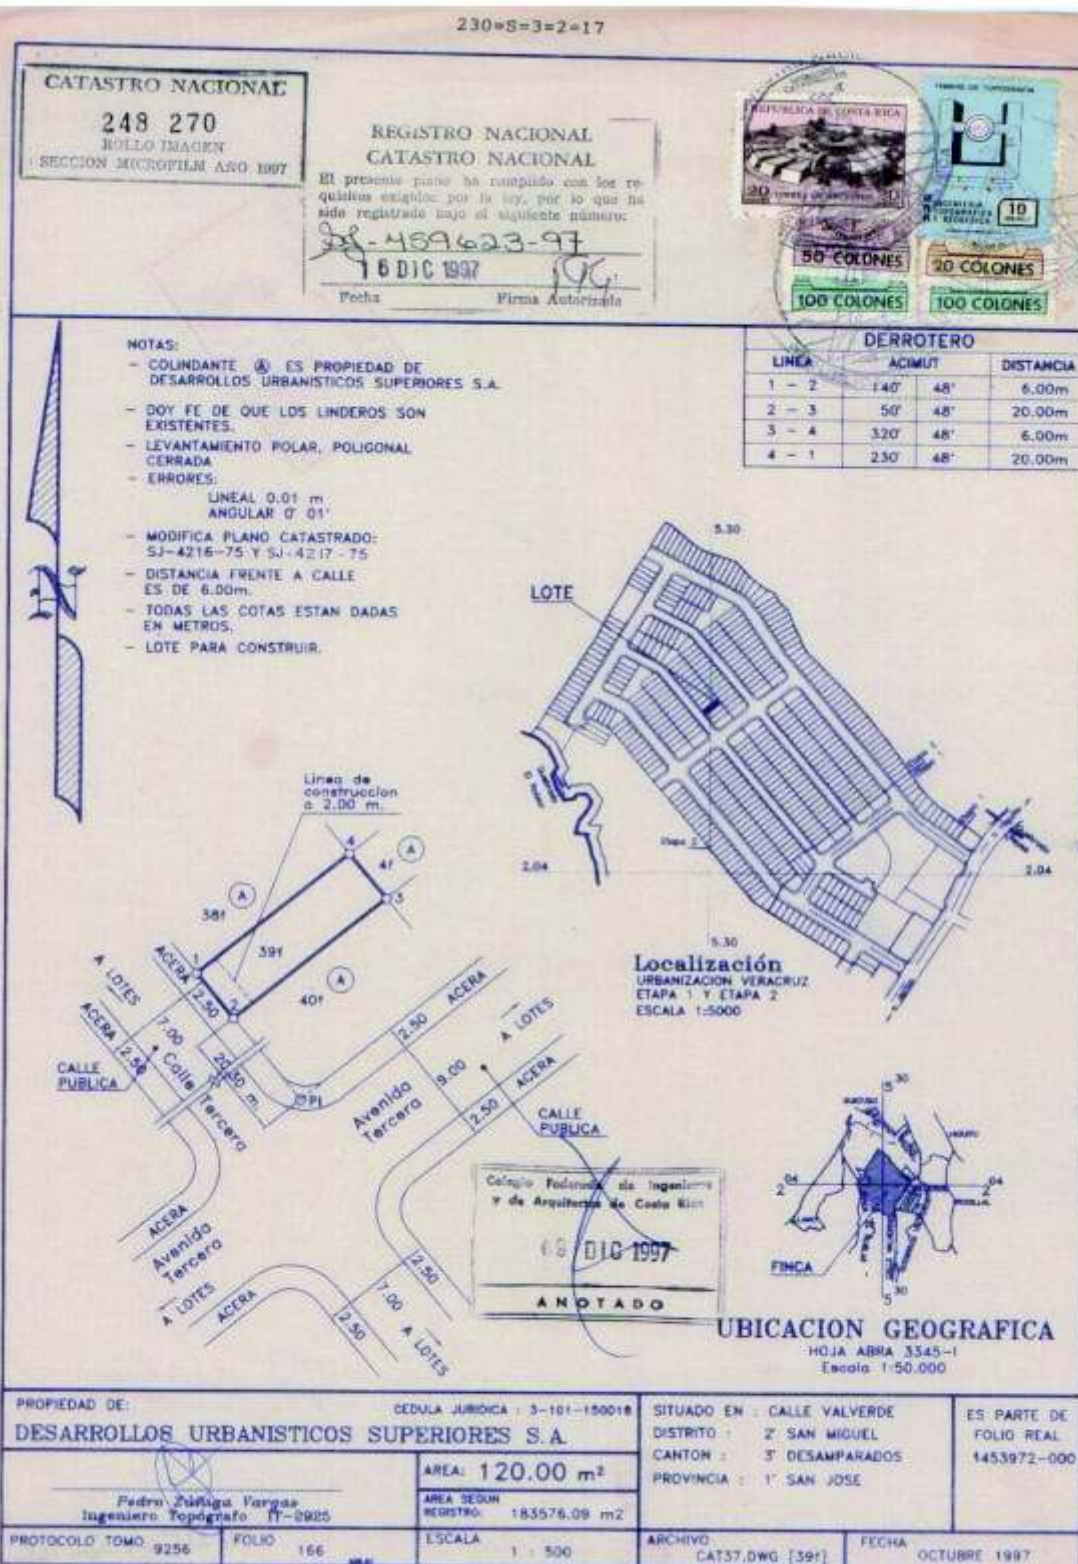 230=S=3=2=17
CATASTRO NACIONAL
248 270
ROLLO IMAGEN
SECCION MICROFILM AÑO 1997
REGISTRO NACIONAL
CATASTRO NACIONAL
El presente plano ha cumplido con los re-
quisitos exigidos por la ley, por lo que ha
sido registrado bajo el siguiente número:
SJ-459623-97
16 DIC 1997
Fecha Firma Autorizada
REPUBLICA DE COSTA RICA
20
TIMBRE DE TOPOGRAFIA
INGENIERIA
TOPOGRAFICA
Y GEODESICA
10
50 COLONES
20 COLONES
100 COLONES
100 COLONES
NOTAS:
- COLINDANTE Ⓐ ES PROPIEDAD DE
DESARROLLOS URBANISTICOS SUPERIORES S.A.
- DOY FE DE QUE LOS LINDEROS SON
EXISTENTES.
- LEVANTAMIENTO POLAR, POLIGONAL
CERRADA
- ERRORES:
LINEAL 0.01 m
ANGULAR 0° 01'
- MODIFICA PLANO CATASTRADO:
SJ-4216-75 Y SJ-4217-75
- DISTANCIA FRENTE A CALLE
ES DE 6.00m.
- TODAS LAS COTAS ESTAN DADAS
EN METROS.
- LOTE PARA CONSTRUIR.
DERROTERO
LINEA ACIMUT DISTANCIA
1 - 2 140° 48' 6.00m
2 - 3 50° 48' 20.00m
3 - 4 320° 48' 6.00m
4 - 1 230° 48' 20.00m
N
5.30
LOTE
Etapa 2
2.04
2.04
5.30
Localización
URBANIZACION VERACRUZ
ETAPA 1 Y ETAPA 2
ESCALA 1:5000
Linea de
construccion
a 2.00 m.
4
41
A
3
A
38f
39f
A
40f
1
2
ACERA
2.50
A LOTES
7.00
ACERA
2.50
CALLE
PUBLICA
Calle Tercera
20.30 m.
PI
ACERA
2.50
A LOTES
9.00
Avenida
Tercera
ACERA
2.50
CALLE
PUBLICA
ACERA
Avenida
Tercera
A LOTES
ACERA
2.50
7.00
2.50
A LOTES
Colegio Federado de Ingenieros
y de Arquitectos de Costa Rica
09 DIC 1997
ANOTADO
5 30
2 04
2 04
FINCA
5 30
UBICACION GEOGRAFICA
HOJA ABRA 3345-I
Escala 1:50.000
PROPIEDAD DE:
CEDULA JURIDICA : 3-101-150018
DESARROLLOS URBANISTICOS SUPERIORES S.A.
Pedro Zúñiga Vargas
Ingeniero Topógrafo IT-2925
AREA: 120.00 m²
AREA SEGUN
REGISTRO: 183576.09 m2
SITUADO EN : CALLE VALVERDE
DISTRITO : 2° SAN MIGUEL
CANTON : 3° DESAMPARADOS
PROVINCIA : 1° SAN JOSE
ES PARTE DE
FOLIO REAL
1453972-000
PROTOCOLO TOMO 9256
FOLIO 166
ESCALA 1 : 500
ARCHIVO CAT37.DWG [39f]
FECHA OCTUBRE 1997